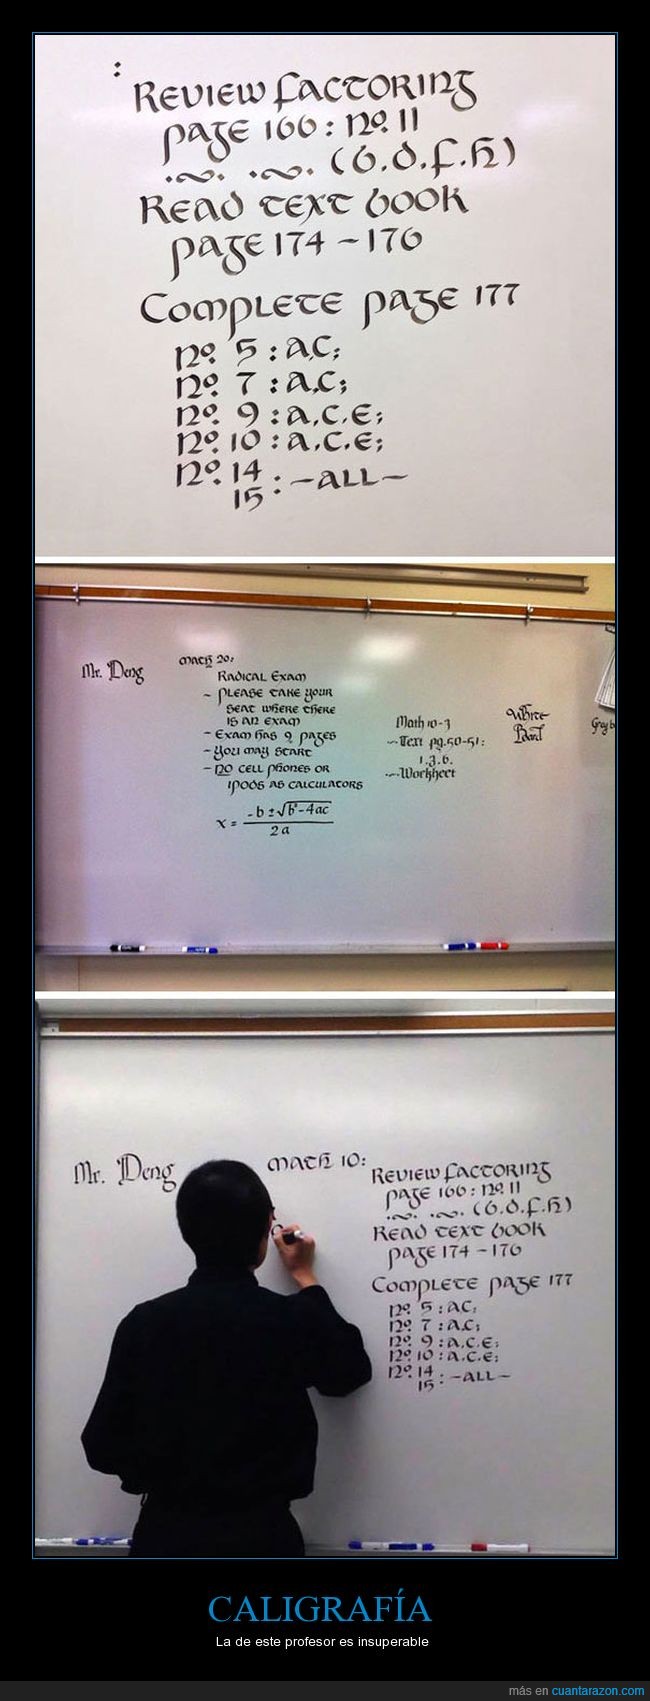 :
Review factoring
page 166 : no. 11
(b.d.f.h)
Read text book
page 174 – 176
Complete page 177
no. 5 : a,c;
no. 7 : a,c;
no. 9 : a.c.e;
no. 10 : a.c.e;
no. 14
15 : –all–
Mr. Deng
Math 20:
Radical Exam
– Please take your
seat where there
is an exam
– Exam has 9 pages
– You may start
– no cell phones or
ipods as calculators
x = -b ± √b²-4ac
2a
Math 10-3
– Text pg. 50-51:
1.3.6.
– Worksheet
White
Board
Mr. Deng
Math 10:
Review factoring
page 166 : no. 11
(b.d.f.h)
Read text book
page 174 – 176
Complete page 177
no. 5 : a,c;
no. 7 : a,c;
no. 9 : a.c.e;
no. 10 : a.c.e;
no. 14
15 : –all–
CALIGRAFÍA
La de este profesor es insuperable
más en cuantarazon.com